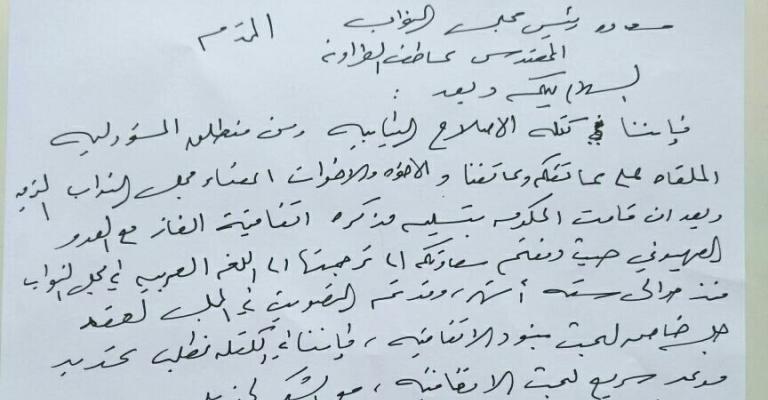 سعادة رئيس مجلس النواب المكرم
المهندس عاطف الطراونه
السلام عليكم وبعد :
فإننا في كتلة الاصلاح النيابيه ومن منطلق المسؤوليه
الملقاه على عاتقكم وعاتقنا والاخوه والاخوات اعضاء مجلس النواب
وبعد ان قامت الحكومه بتسليم مذكره اتفاقية الغاز مع العدو
الصهيوني حيث وبعثتم سعادتكم الى ترجمتها الى اللغه العربيه في مجلس النواب
منذ حوالي سته أشهر، وقد تم التصويت في المجلس لعقد
جلسه خاصه لبحث بنود الاتفاقيه، فإننا في الكتله نطلب تحديد
موعد سريع لبحث الاتفاقيه، مع الشكر